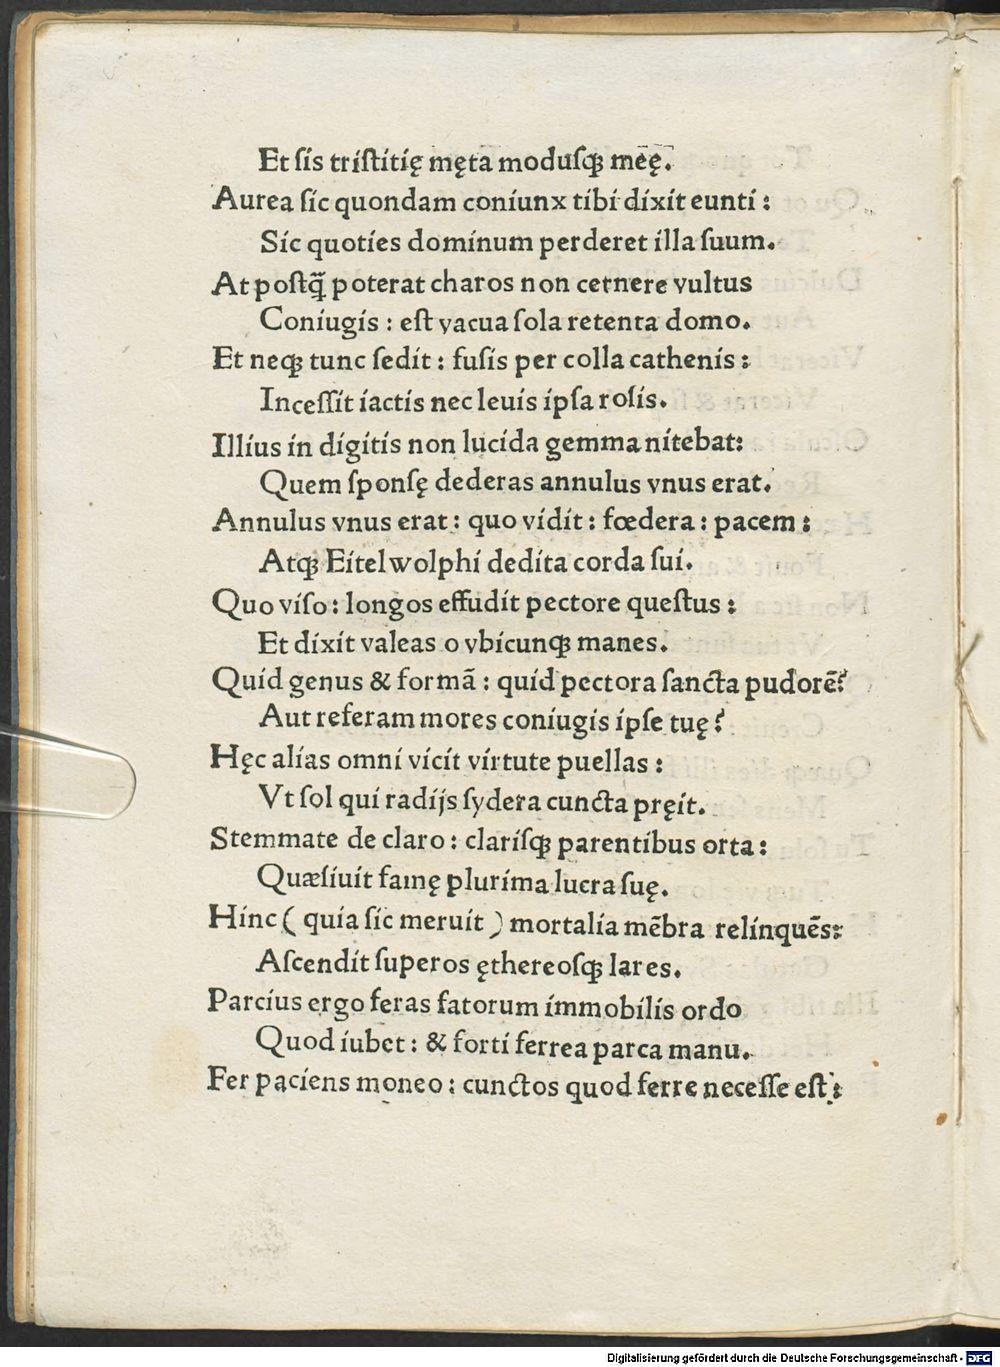 Et sis tristitię męta modusq; mēę.
Aurea sic quondam coniunx tibi dixit eunti :
Sic quoties dominum perderet illa suum.
At postq̄ poterat charos non cernere vultus
Coniugis : est vacua sola retenta domo.
Et neq; tunc sedit : fusis per colla cathenis :
Incessit iactis nec leuis ipsa rosis.
Illius in digitis non lucida gemma nitebat:
Quem sponsę dederas annulus vnus erat.
Annulus vnus erat : quo vidit : fœdera : pacem :
Atq; Eitelwolphi dedita corda sui.
Quo viso : longos effudit pectore questus :
Et dixit valeas o vbicunq; manes.
Quid genus & formā : quid pectora sancta pudorē?
Aut referam mores coniugis ipse tuę?
Hęc alias omni vicit virtute puellas :
Vt sol qui radijs sydera cuncta pręit.
Stemmate de claro : clarisq; parentibus orta :
Quæsiuit famę plurima lucra suę.
Hinc ( quia sic meruit ) mortalia mēbra relinquēs:
Ascendit superos ęthereosq; lares.
Parcius ergo feras fatorum immobilis ordo
Quod iubet : & forti ferrea parca manu.
Fer paciens moneo : cunctos quod ferre necesse est :
Digitalisierung gefördert durch die Deutsche Forschungsgemeinschaft - DFG